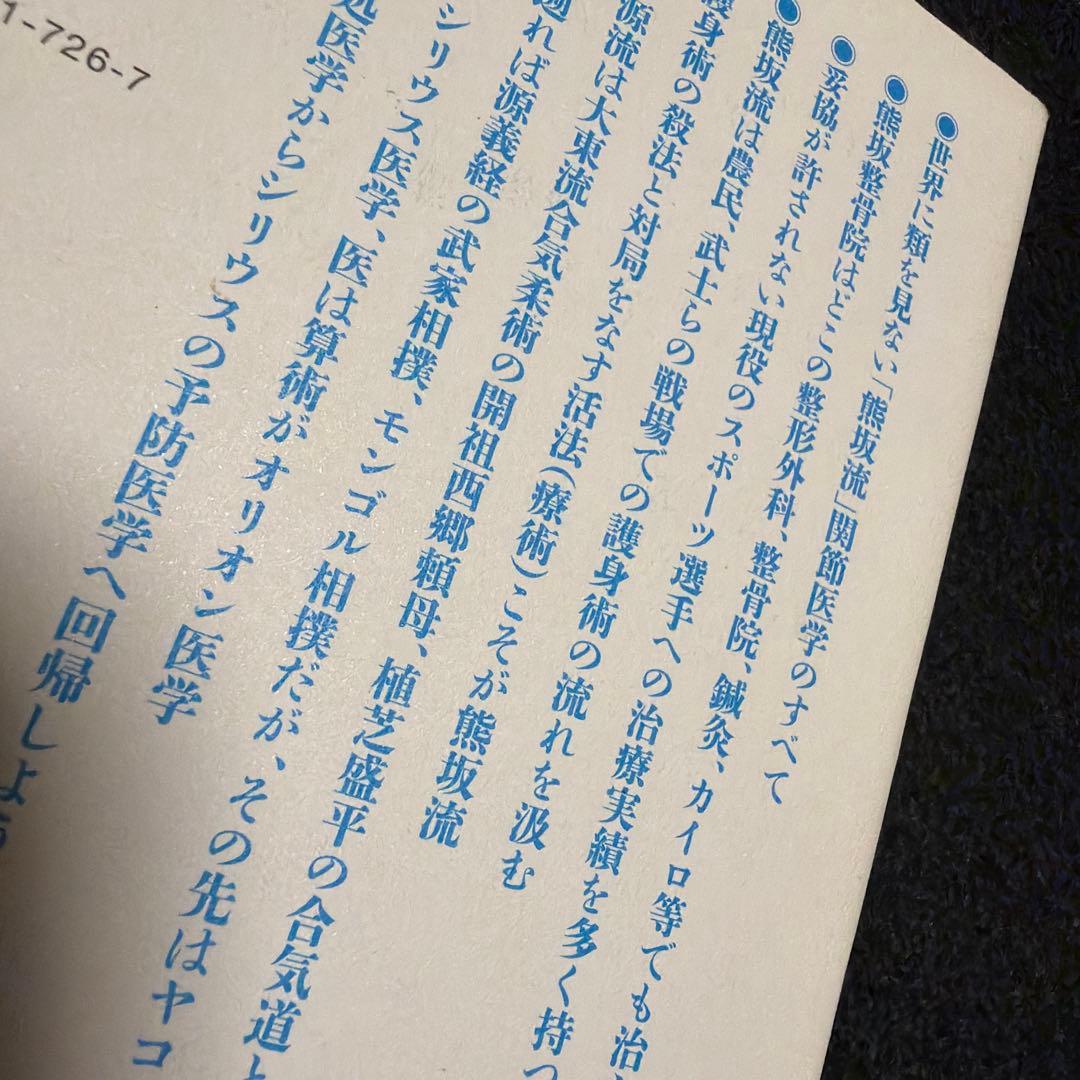 ◉世界に類を見ない「熊坂流」関節医学のすべて
●熊坂整骨院はどこの整形外科、整骨院、鍼灸、カイロ等でも治
●妥協が許されない現役のスポーツ選手への治療実績を多く持つ
●熊坂流は農民、武士らの戦場での護身術の流れを汲む
護身術の殺法と対局をなす活法(療術)こそが熊坂流
源流は大東流合気柔術の開祖西郷頼母、植芝盛平の合気道と
遡れば源義経の武家相撲、モンゴル相撲だが、その先はヤコ
シリウス医学、医は算術がオリオン医学
処医学からシリウスの予防医学へ回帰しよう
1-726-7